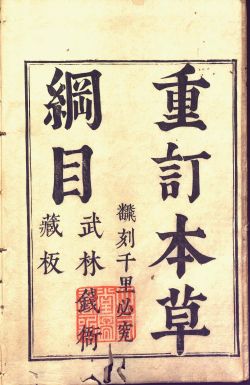 重訂本草
飜刻千里必究
綱目
武林錢衙
藏板